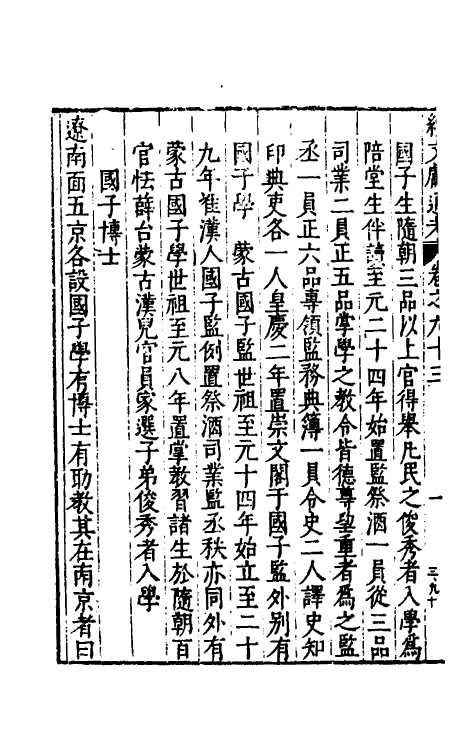 續文獻通考 卷之九十三 一 三九十
國子生隨朝三品以上官得舉凡民之俊秀者入學為
陪堂生伴讀至元二十四年始置監祭酒一員從三品
司業二員正五品掌學之教令皆德尊望重者為之監
丞一員正六品專領監務典簿一員令史二人譯史知
印典吏各一人皇慶二年置崇文閣于國子監外別有
國子學 蒙古國子監世祖至元十四年始立至二十
九年準漢人國子監例置祭酒司業監丞秩亦同外有
蒙古國子學世祖至元八年置掌教習諸生於隨朝百
官怯薛台蒙古漢兒官員家選子弟俊秀者入學
國子博士
遼南面五京各設國子學有博士有助教其在南京者曰